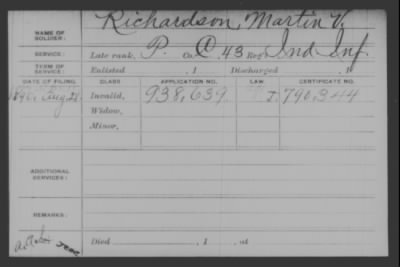 NAME OF SOLDIER: Richardson, Martin V.
SERVICE: Late rank, P. Co. C, 43 Reg't Ind Inf.
TERM OF SERVICE: Enlisted , 1 Discharged , 1
DATE OF FILING. CLASS. APPLICATION NO. LAW. CERTIFICATE NO.
Aug. 21 Invalid, 938,639 I. 790,344
Widow,
Minor,
ADDITIONAL SERVICES:
REMARKS:
Died , 1 , at